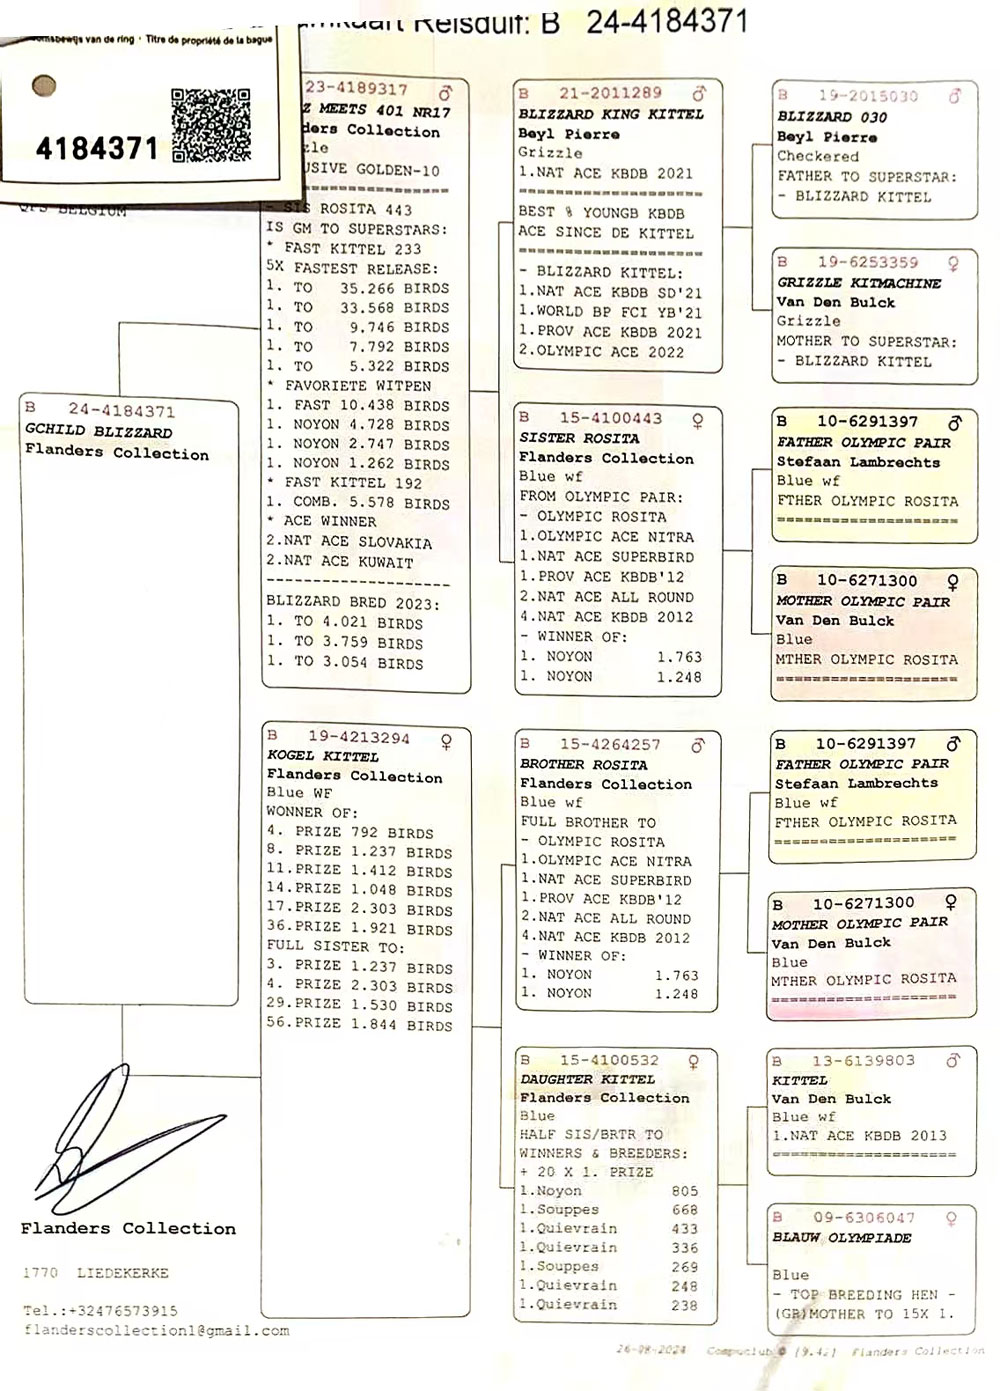 Reisduif: B 24-4184371
van de ring · Titre de propriété de la bague
4184371
BELGIUM
B 24-4184371
GCHILD BLIZZARD
Flanders Collection
23-4189317 ♂
MEETS 401 NR17
Collection
GOLDEN-10
====================
- SIS ROSITA 443
IS GM TO SUPERSTARS:
* FAST KITTEL 233
5X FASTEST RELEASE:
1. TO 35.266 BIRDS
1. TO 33.568 BIRDS
1. TO 9.746 BIRDS
1. TO 7.792 BIRDS
1. TO 5.322 BIRDS
* FAVORIETE WITPEN
1. FAST 10.438 BIRDS
1. NOYON 4.728 BIRDS
1. NOYON 2.747 BIRDS
1. NOYON 1.262 BIRDS
* FAST KITTEL 192
1. COMB. 5.578 BIRDS
* ACE WINNER
2.NAT ACE SLOVAKIA
2.NAT ACE KUWAIT
--------------------
BLIZZARD BRED 2023:
1. TO 4.021 BIRDS
1. TO 3.759 BIRDS
1. TO 3.054 BIRDS
B 19-4213294 ♀
KOGEL KITTEL
Flanders Collection
Blue WF
WONNER OF:
4. PRIZE 792 BIRDS
8. PRIZE 1.237 BIRDS
11.PRIZE 1.412 BIRDS
14.PRIZE 1.048 BIRDS
17.PRIZE 2.303 BIRDS
36.PRIZE 1.921 BIRDS
FULL SISTER TO:
3. PRIZE 1.237 BIRDS
4. PRIZE 2.303 BIRDS
29.PRIZE 1.530 BIRDS
56.PRIZE 1.844 BIRDS
B 21-2011289 ♂
BLIZZARD KING KITTEL
Beyl Pierre
Grizzle
1.NAT ACE KBDB 2021
====================
BEST % YOUNGB KBDB
ACE SINCE DE KITTEL
====================
- BLIZZARD KITTEL:
1.NAT ACE KBDB SD'21
1.WORLD BP FCI YB'21
1.PROV ACE KBDB 2021
2.OLYMPIC ACE 2022
B 15-4100443 ♀
SISTER ROSITA
Flanders Collection
Blue wf
FROM OLYMPIC PAIR:
- OLYMPIC ROSITA
1.OLYMPIC ACE NITRA
1.NAT ACE SUPERBIRD
1.PROV ACE KBDB'12
2.NAT ACE ALL ROUND
4.NAT ACE KBDB 2012
- WINNER OF:
1. NOYON 1.763
1. NOYON 1.248
B 15-4264257 ♂
BROTHER ROSITA
Flanders Collection
Blue wf
FULL BROTHER TO
- OLYMPIC ROSITA
1.OLYMPIC ACE NITRA
1.NAT ACE SUPERBIRD
1.PROV ACE KBDB'12
2.NAT ACE ALL ROUND
4.NAT ACE KBDB 2012
- WINNER OF:
1. NOYON 1.763
1. NOYON 1.248
B 15-4100532 ♀
DAUGHTER KITTEL
Flanders Collection
Blue
HALF SIS/BRTR TO
WINNERS & BREEDERS:
+ 20 X 1. PRIZE
1.Noyon 805
1.Souppes 668
1.Quievrain 433
1.Quievrain 336
1.Souppes 269
1.Quievrain 248
1.Quievrain 238
B 19-2015030 ♂
BLIZZARD 030
Beyl Pierre
Checkered
FATHER TO SUPERSTAR:
- BLIZZARD KITTEL
B 19-6253359 ♀
GRIZZLE KITMACHINE
Van Den Bulck
Grizzle
MOTHER TO SUPERSTAR:
- BLIZZARD KITTEL
B 10-6291397 ♂
FATHER OLYMPIC PAIR
Stefaan Lambrechts
Blue wf
FTHER OLYMPIC ROSITA
====================
B 10-6271300 ♀
MOTHER OLYMPIC PAIR
Van Den Bulck
Blue
MTHER OLYMPIC ROSITA
====================
B 10-6291397 ♂
FATHER OLYMPIC PAIR
Stefaan Lambrechts
Blue wf
FTHER OLYMPIC ROSITA
====================
B 10-6271300 ♀
MOTHER OLYMPIC PAIR
Van Den Bulck
Blue
MTHER OLYMPIC ROSITA
====================
B 13-6139803 ♂
KITTEL
Van Den Bulck
Blue wf
1.NAT ACE KBDB 2013
====================
B 09-6306047 ♀
BLAUW OLYMPIADE
Blue
- TOP BREEDING HEN -
(GR)MOTHER TO 15X 1.
Flanders Collection
1770 LIEDEKERKE
Tel.:+32476573915
flanderscollection1@gmail.com
26-08-2024 Compuclub © [9.42] Flanders Collection